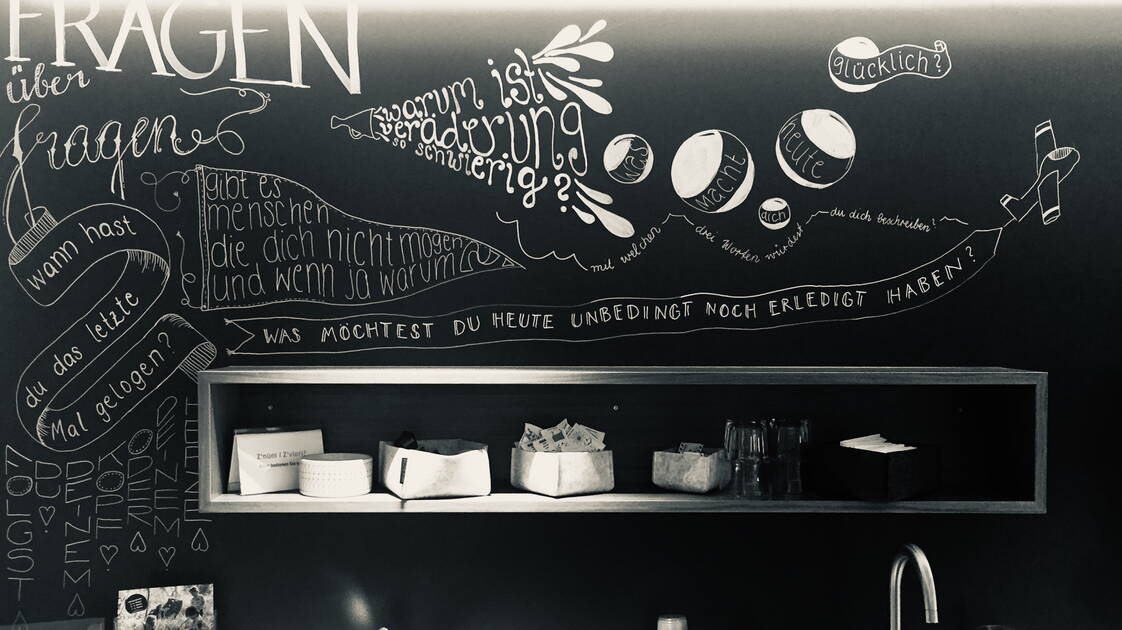 FRAGEN
über
fragen
wann hast
du das letzte
Mal gelogen?
gibt es
menschen
die dich nicht mögen
und wenn ja warum?
warum ist
veräderung
so schwierig?
was
macht
dich
heute
glücklich?
mit welchen
drei Worten würdest
du dich beschreiben?
WAS MÖCHTEST DU HEUTE UNBEDINGT NOCH ERLEDIGT HABEN?
FOLGST
DU
DEINEM
KOPF
ODER
DEINEM
Z'nüni | Z'vieri?